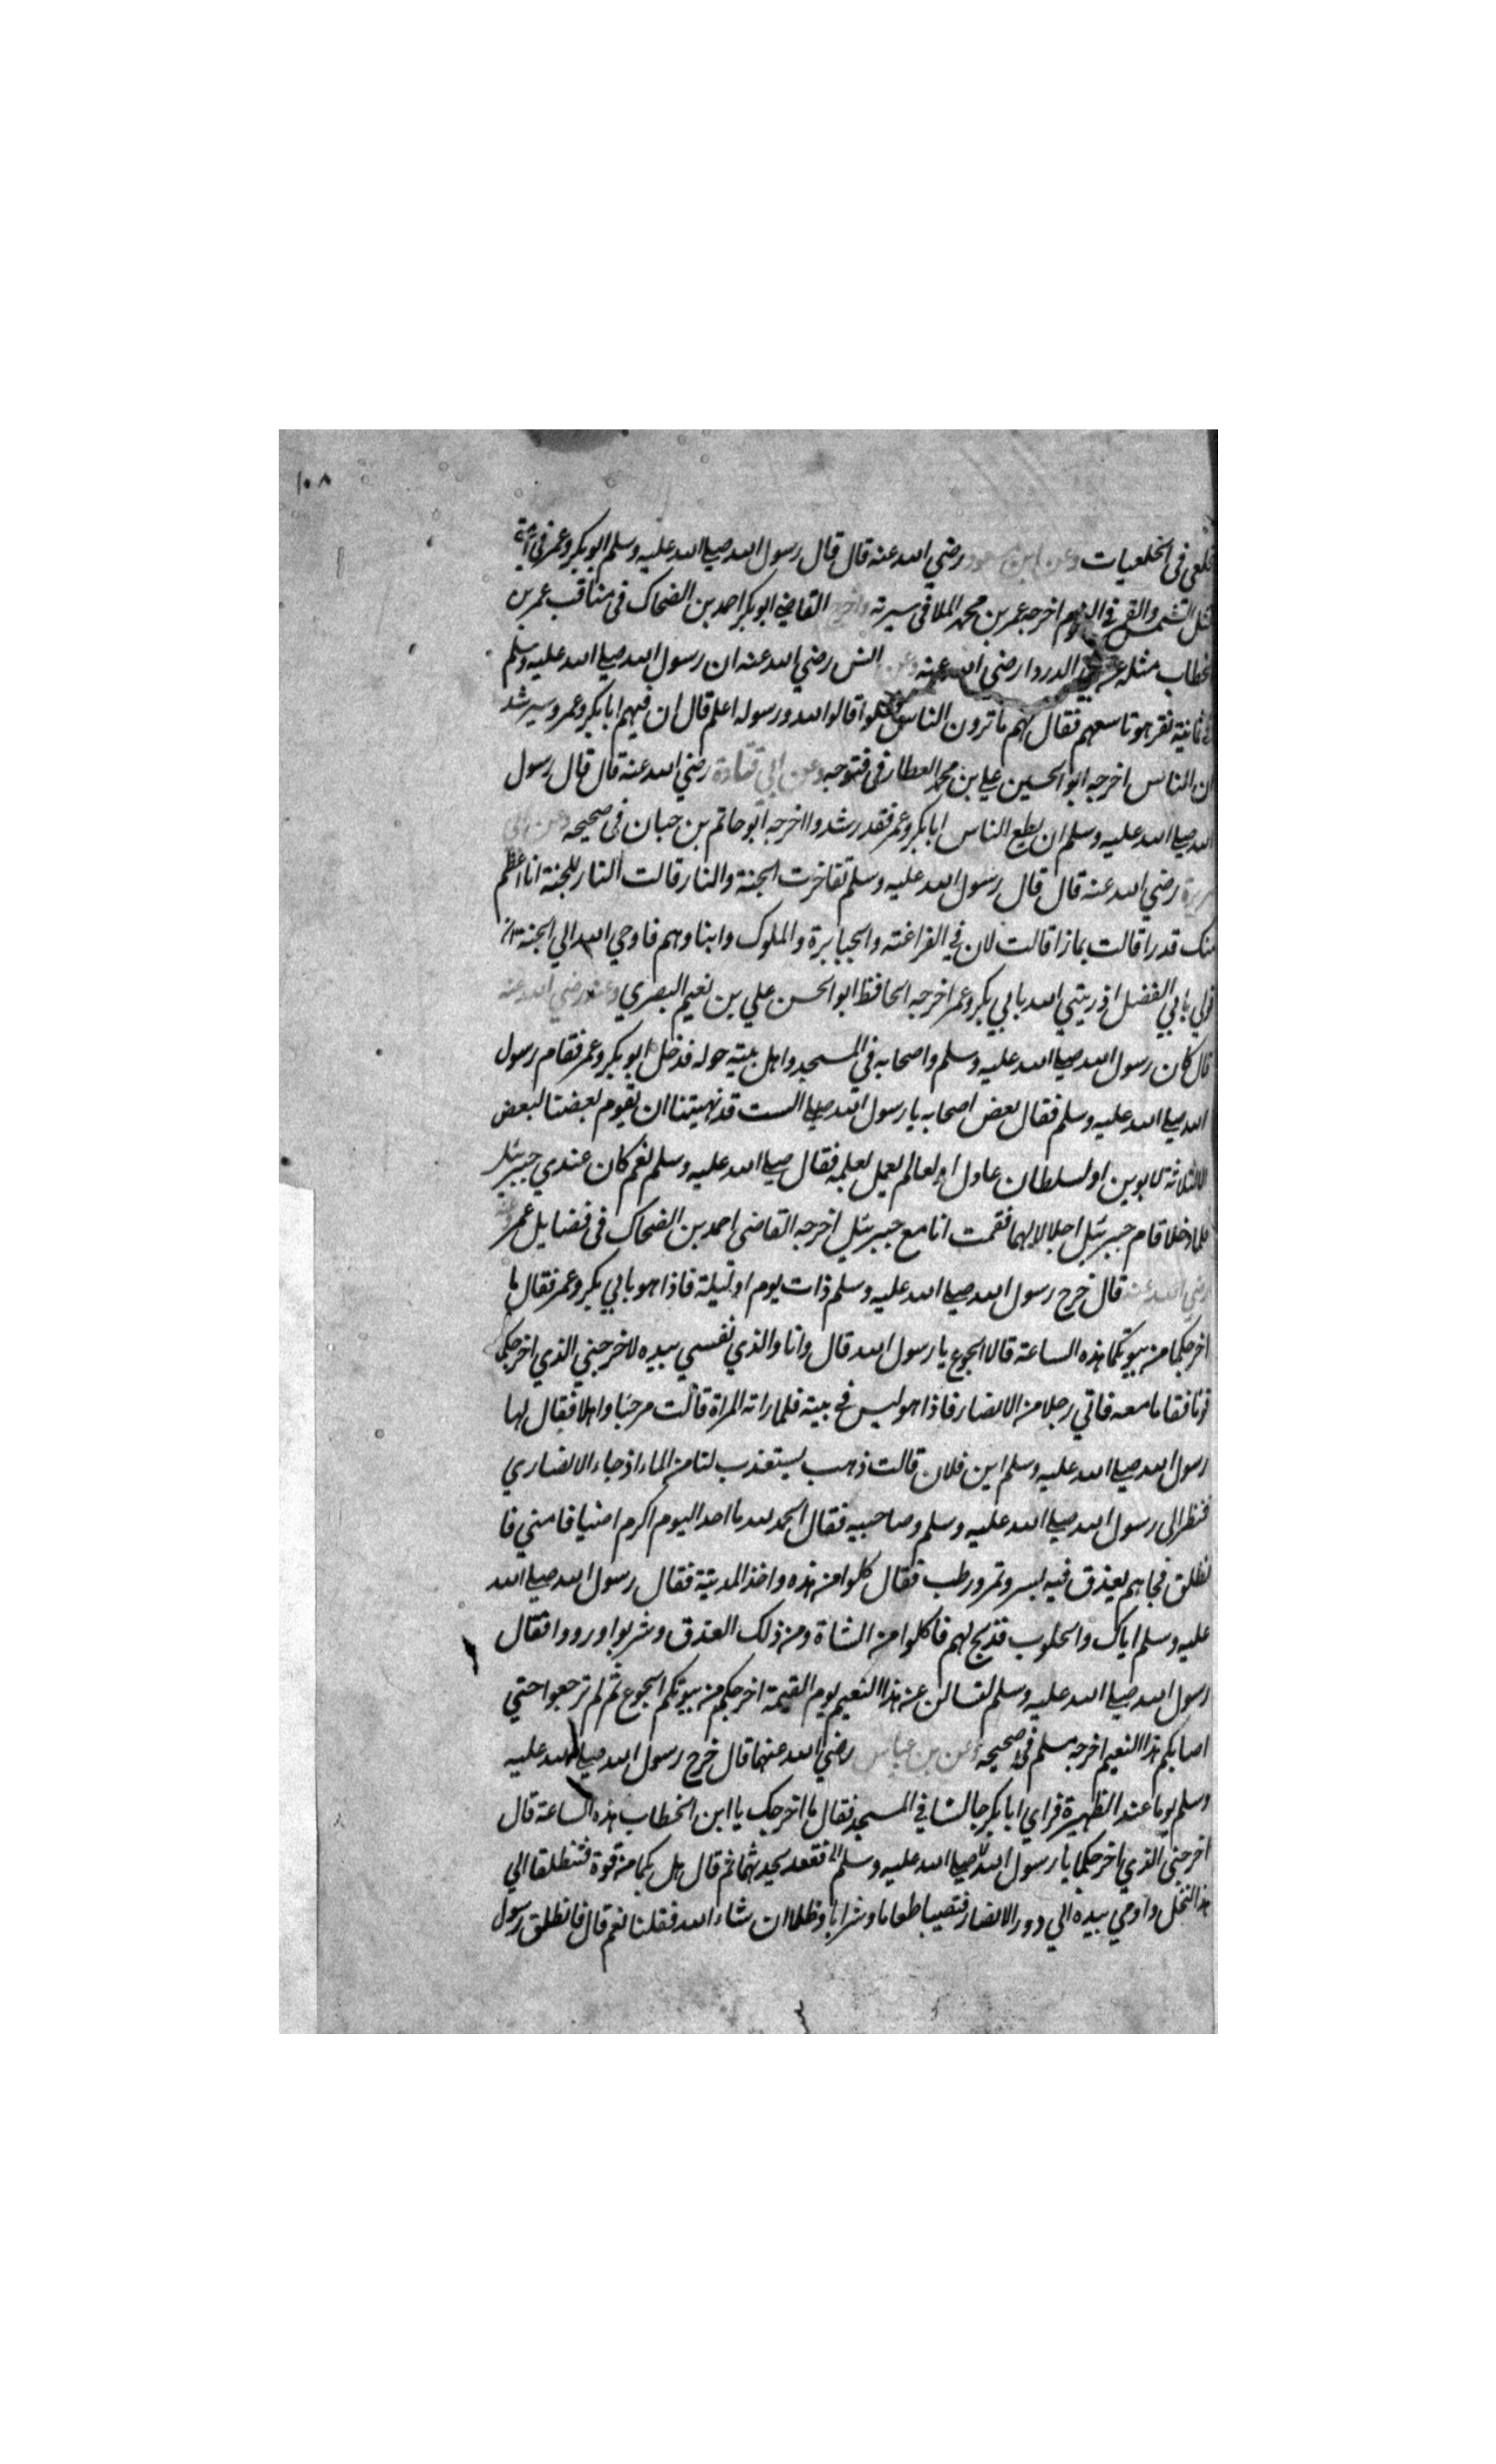 ١٠٨
خلعى فى الخلعيات وعن ابن مسعود رضي الله عنه قال قال رسول الله صلى الله عليه وسلم ابو بكر وعمر في امتي
مثل الشمس والقمر في النجوم اخرجه عمر بن محمد الملا فى سيرته واخرج القاضي ابو بكر احمد بن الضحاك فى مناقب عمر بن
الخطاب مثله عن ابي الدردا رضى الله عنه وعن انس رضي الله عنه ان رسول الله صلى الله عليه وسلم
في ثمانية نفر هو تاسعهم فقال لهم ما ترون الناس قالوا الله ورسوله اعلم قال ان فيهم ابا بكر وعمر وسيرشد
ان الناس اخرجه ابو الحسين علي بن محمد العطار فى فتوحه وعن ابي قتادة رضي الله عنه قال قال رسول
الله صلى الله عليه وسلم ان يطع الناس ابا بكر وعمر فقد رشدوا اخرجه ابو حاتم بن حبان فى صحيحه وعن ابي
هريرة رضي الله عنه قال قال رسول الله عليه وسلم تفاخرت الجنة والنار قالت النار للجنة انا اعظم
منك قدرا قالت بماذا قالت لان في الفراعنه والجبابرة والملوك وابناوهم فاوحي الله الي الجنة ان
قولي بل لي الفضل اذ زينني الله بابي بكر وعمر اخرجه الحافظ ابو الحسن علي بن نعيم البصري وعنه رضي الله عنه
قال كان رسول الله صلى الله عليه وسلم واصحابه في المسجد واهل بيته حوله فدخل ابو بكر وعمر فقام رسول
الله صلى الله عليه وسلم فقال بعض اصحابه يا رسول الله صلى الست قد نهيتنا ان يقوم بعضنا لبعض
الا لثلاثة لابوين او لسلطان عادل او لعالم يعمل بعلمه فقال صلى الله عليه وسلم نعم كان عندي جبرئيل
فلما دخلا قام جبرئيل اجلالا لهما فقمت انا مع جبرئيل اخرجه القاضى احمد بن الضحاك فى فضايل عمر وعنه
رضي الله عنه قال خرج رسول الله صلى الله عليه وسلم ذات يوم او ليلة فاذا هو بابي بكر وعمر فقال ما
اخرجكما من بيوتكما هذه الساعة قالا الجوع يا رسول الله قال وانا والذي نفسي بيده لاخرجني الذي اخرجكما
قوما فقاما معه فاتي رجلا من الانصار فاذا هو ليس في بيته فلما راته المراة قالت مرحبا واهلا فقال لها
رسول الله صلى الله عليه وسلم اين فلان قالت ذهب يستعذب لنا من الماء اذ جاء الانصاري
فنظر الى رسول الله صلى الله عليه وسلم وصاحبيه فقال الحمد لله ما احد اليوم اكرم اضيافا مني فا
نطلق فجاهم بعذق فيه بسر وتمر ورطب فقال كلوا من هذه واخذ المدية فقال رسول الله صلى الله
عليه وسلم اياك والحلوب فذبح لهم فاكلوا من الشاة ومن ذلك العذق وشربوا ورووا فقال
رسول الله صلى الله عليه وسلم لتسالن عن هذا النعيم يوم القيمة اخرجكم من بيوتكم الجوع ثم لم ترجعوا حتي
اصابكم هذا النعيم اخرجه مسلم في صحيحه وعن بن عباس رضي الله عنهما قال خرج رسول الله صلى الله عليه
وسلم يوما عند الظهيرة فراي ابا بكر جالسا في المسجد فقال ما اخرجك يا ابن الخطاب هذه الساعة قال
اخرجني الذي اخرجكما يا رسول الله صلى الله عليه وسلم فقعد يحدثهما ثم قال هل بكما من قوة فتنطلقا الي
هذا النخل واومي بيده الي دور الانصار فتصيبا طعاما وشرابا وظلا ان شاء الله فقلنا نعم قال فانطلق رسول